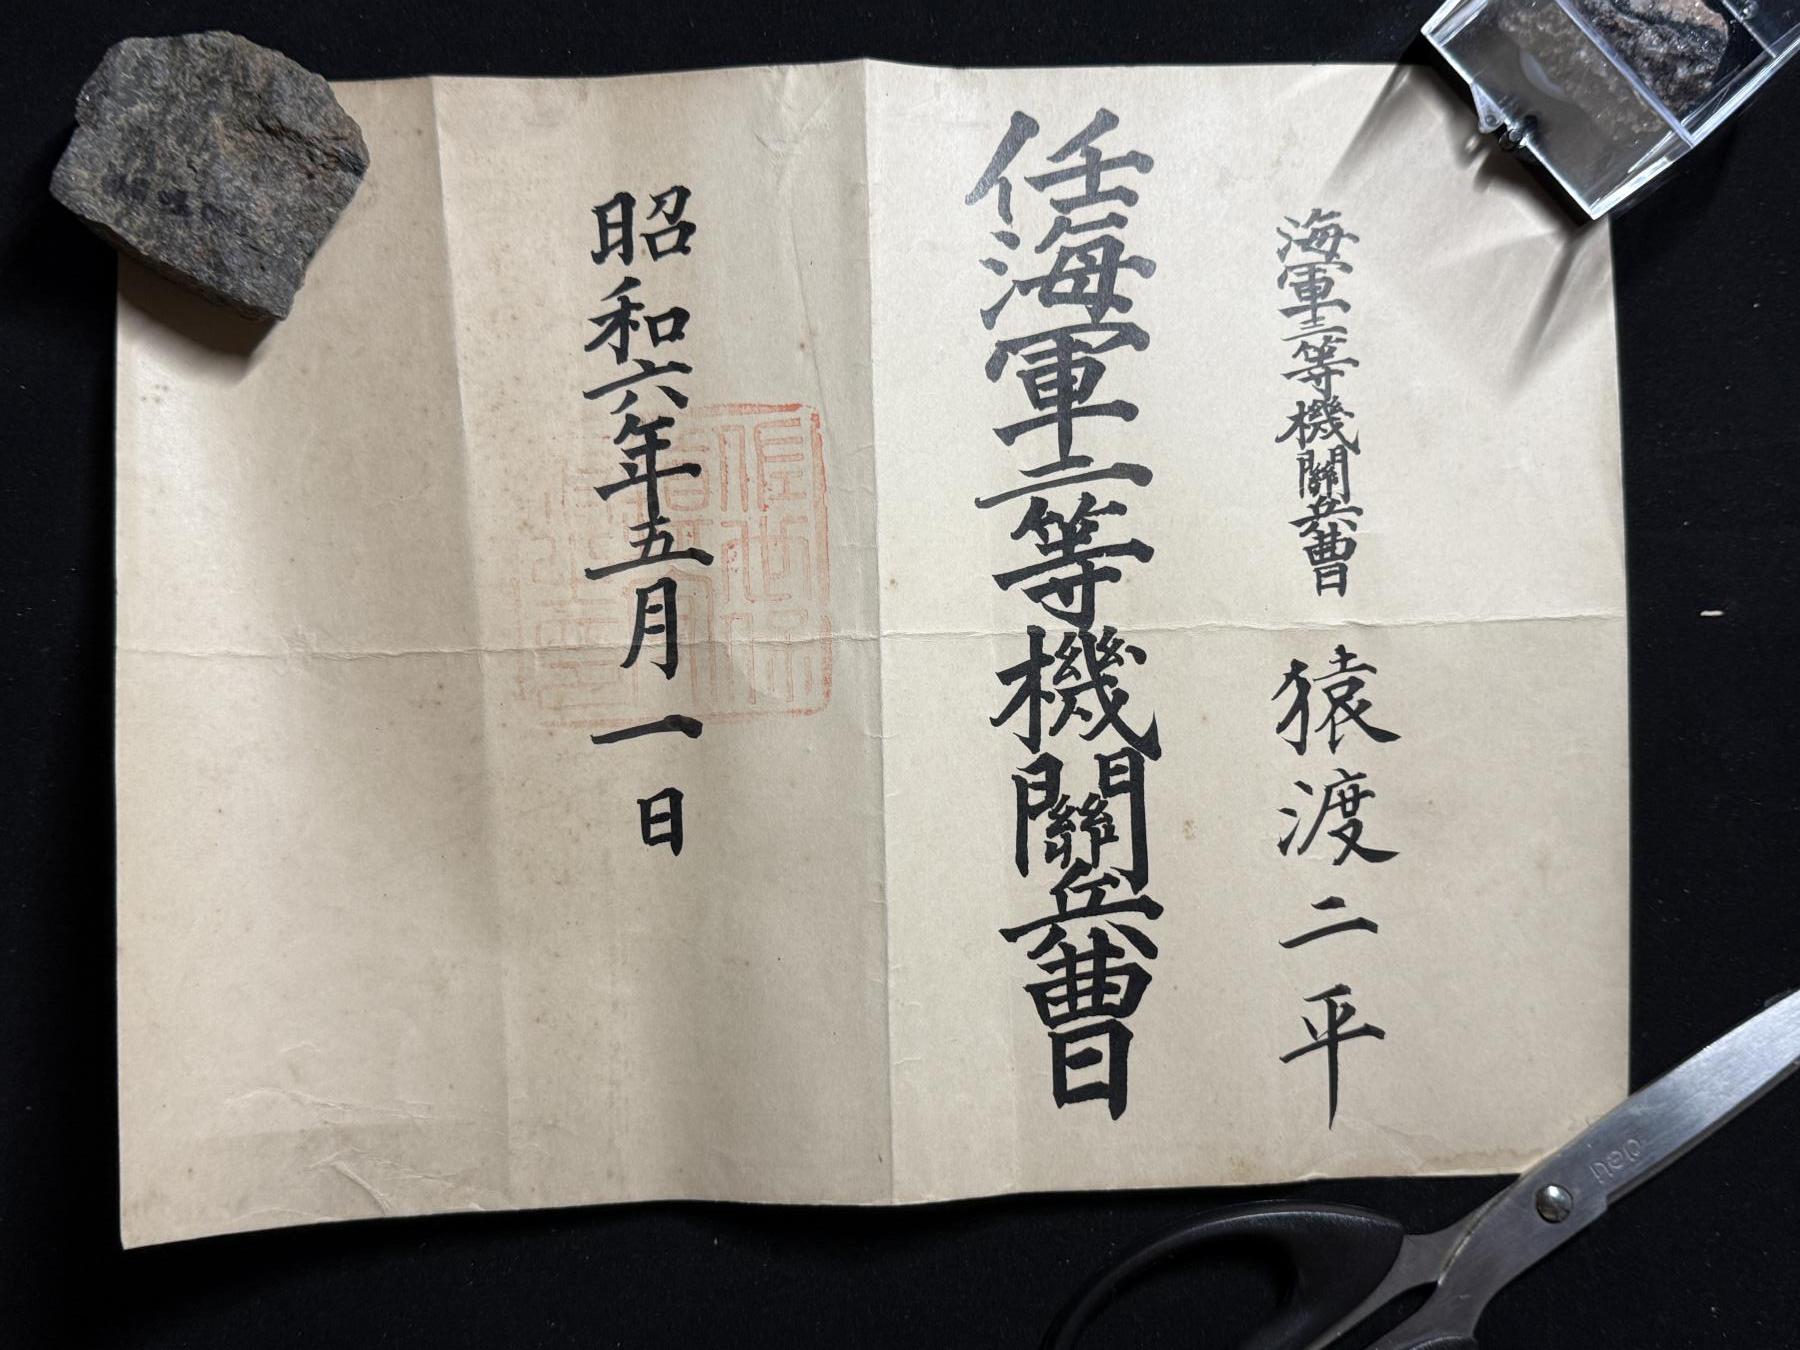 海軍三等機關兵曹 猿渡二平
任海軍二等機關兵曹
昭和六年五月一日
佐世保